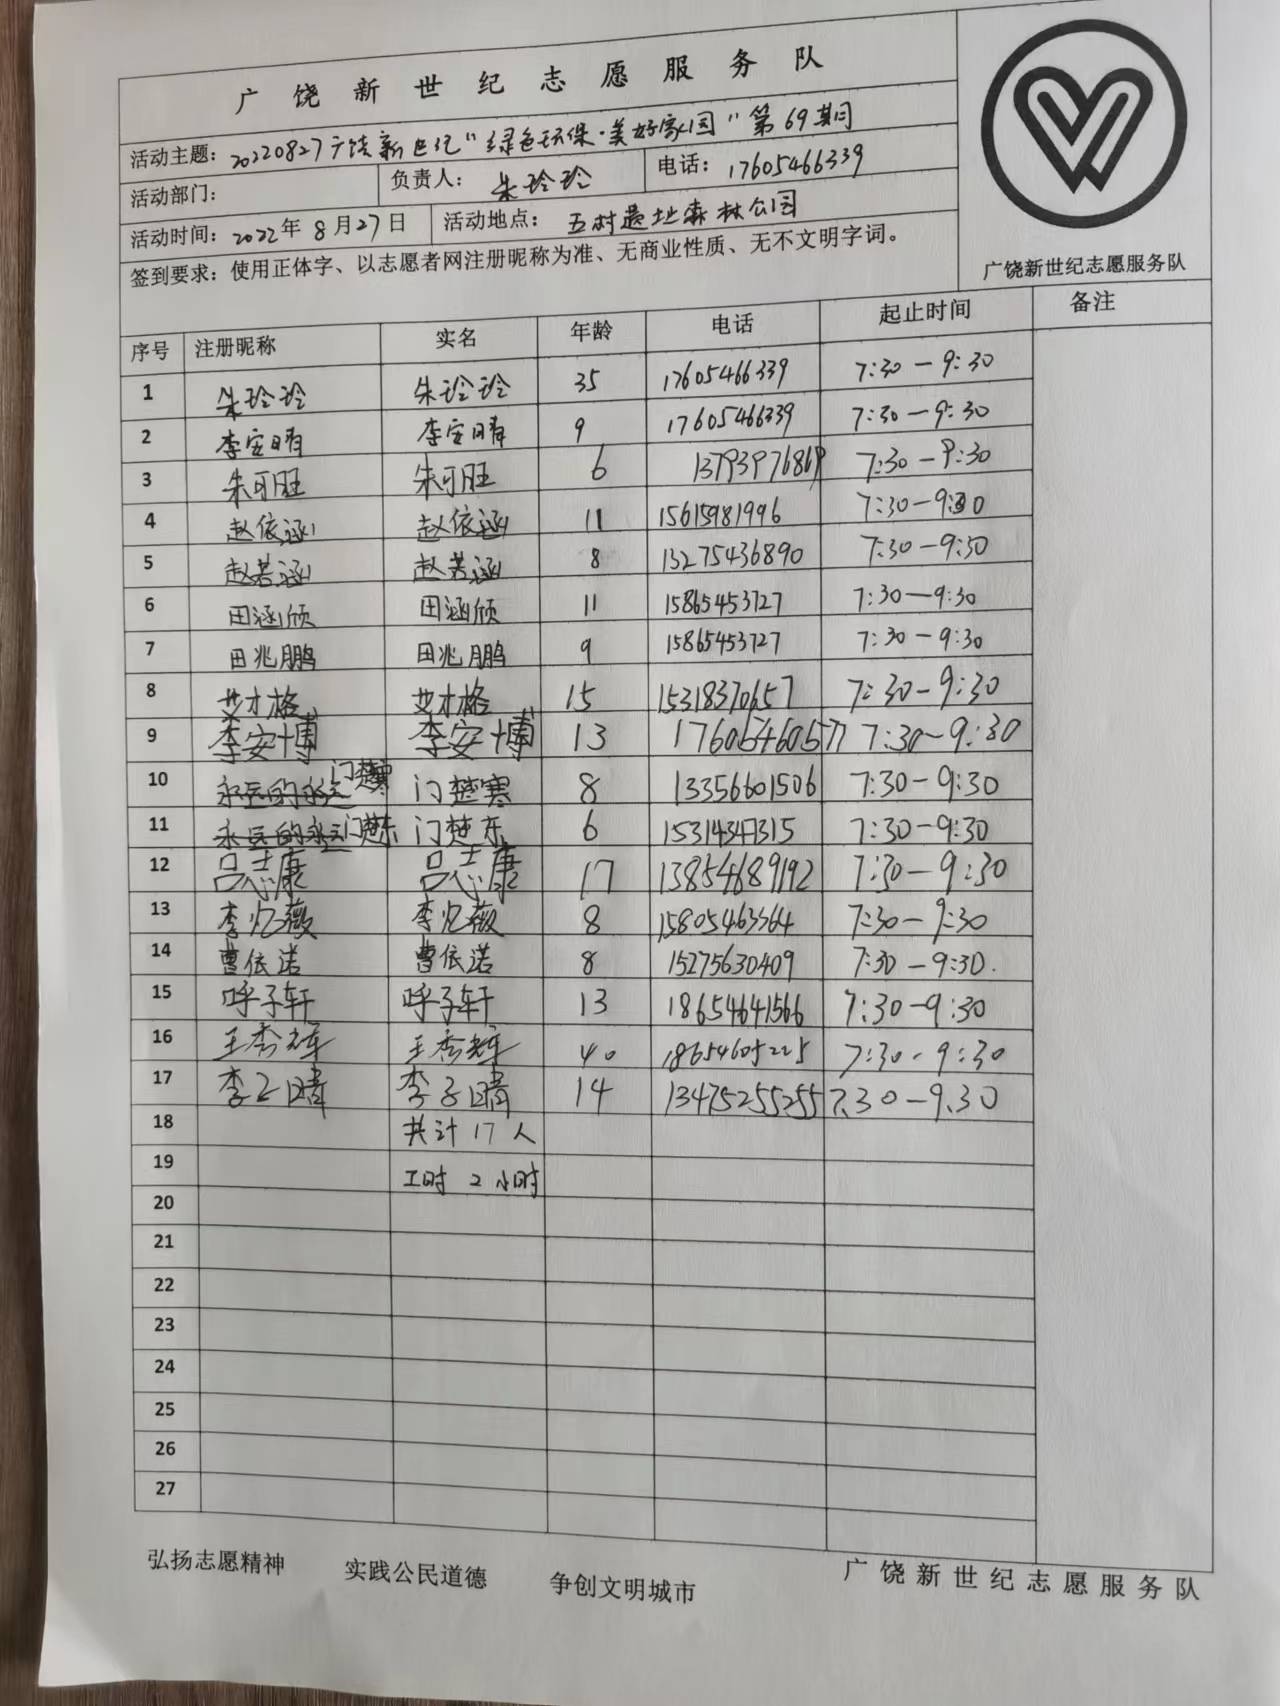 广饶新世纪志愿服务队
活动主题：20220827广饶新世纪"绿色环保·美好家园"第69期
活动部门： 负责人：朱玲玲 电话：17605466339
活动时间：2022年8月27日 活动地点：五村遗址森林公园
签到要求：使用正体字、以志愿者网注册昵称为准、无商业性质、无不文明字词。
广饶新世纪志愿服务队
序号 注册昵称 实名 年龄 电话 起止时间 备注
1 朱玲玲 朱玲玲 35 17605466339 7:30-9:30
2 李安晴 李安晴 9 17605466339 7:30-9:30
3 朱可旺 朱可旺 6 13793976869 7:30-9:30
4 赵依涵 赵依涵 11 15615981996 7:30-9:30
5 赵若涵 赵若涵 8 13275436890 7:30-9:30
6 田涵颀 田涵颀 11 15865453727 7:30-9:30
7 田兆鹏 田兆鹏 9 15865453727 7:30-9:30
8 艾才格 艾才格 15 15318370657 7:30-9:30
9 李安博 李安博 13 17605460577 7:30-9:30
10 永远的永远 门楚寒 门楚寒 8 13356601506 7:30-9:30
11 永远的永远 门楚东 门楚东 6 15314347315 7:30-9:30
12 吕志康 吕志康 17 13854689192 7:30-9:30
13 李忆薇 李忆薇 8 15805463364 7:30-9:30
14 曹依诺 曹依诺 8 15275630409 7:30-9:30.
15 呼子轩 呼子轩 13 18654641566 7:30-9:30
16 王秀辉 王秀辉 40 18654605225 7:30-9:30
17 李子晴 李子晴 14 13475255255 7.30-9.30
18 共计17人
19 工时 2小时
20
21
22
23
24
25
26
27
弘扬志愿精神 实践公民道德 争创文明城市 广饶新世纪志愿服务队